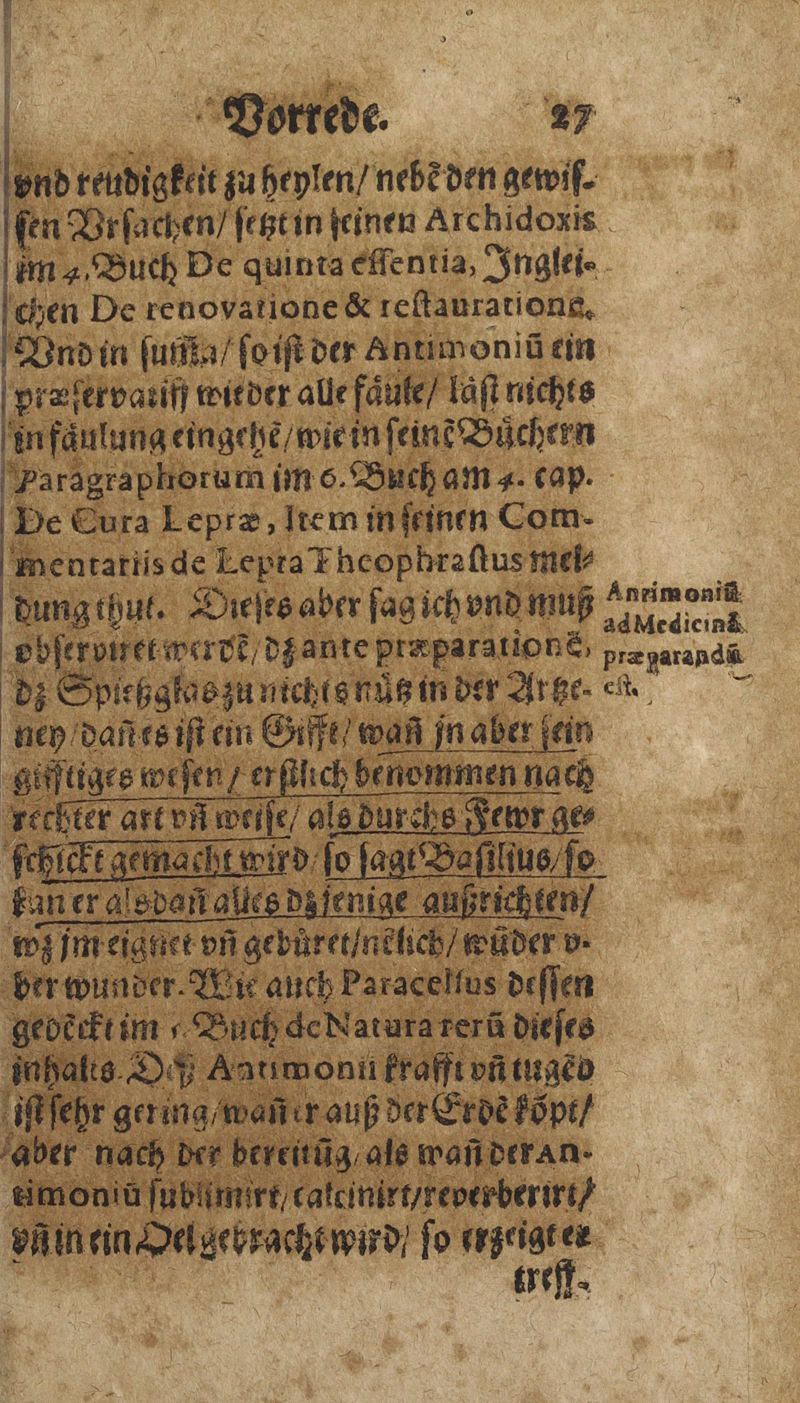 Vorrede. 27
vnd reudigkeit zu heylen/ nebẽ den gewis-
sen Vrsachen/ setzt in seinen Archidoxis
im 4. Buch De quinta essentia, Inglei-
chen De renovatione & restauratione.
Vnd in summa/ so ist der Antimoniũ ein
præservatiff wieder alle fäule/ läst nichts
in fäulung eingehẽ/ wie in seinẽ Büchern
Paragraphorum im 6. Buch am 4. cap.
De Cura Lepræ, Item in seinen Com-
mentariis de Lepra Theophrastus mel-
dung thut. Dieses aber sag ich vnd muß
observiret werdẽ/ dz ante præparationẽ,
dz Spießglas zu nichts nütz in der Artze-
ney/ dañ es ist ein Gifft/ wañ jn aber sein
gifftiges wesen/ erstlich benommen nach
rechter art vñ weise/ als durchs Fewr ge-
schickt gemacht wird/ so sagt Basilius/ so
kan er alsdañ alles dzjenige außrichten/
wz jm eignet vñ gebüret/ nẽlich/ wũder v-
ber wunder. Wie auch Paracelsus dessen
gedẽckt im Buch de Natura rerũ dieses
inhalts. Deß Antimonii krafft vñ tugẽd
ist sehr gering/ wañ er auß der Erdẽ kõpt/
aber nach der bereitũg/ als wañ der An-
timoniũ sublimirt/ calcinirt/ reverberirt/
vñ in ein Oel gebracht wird/ so erzeigt er
treff-
Antimoniũ
ad Medicinã
præparandũ
est.